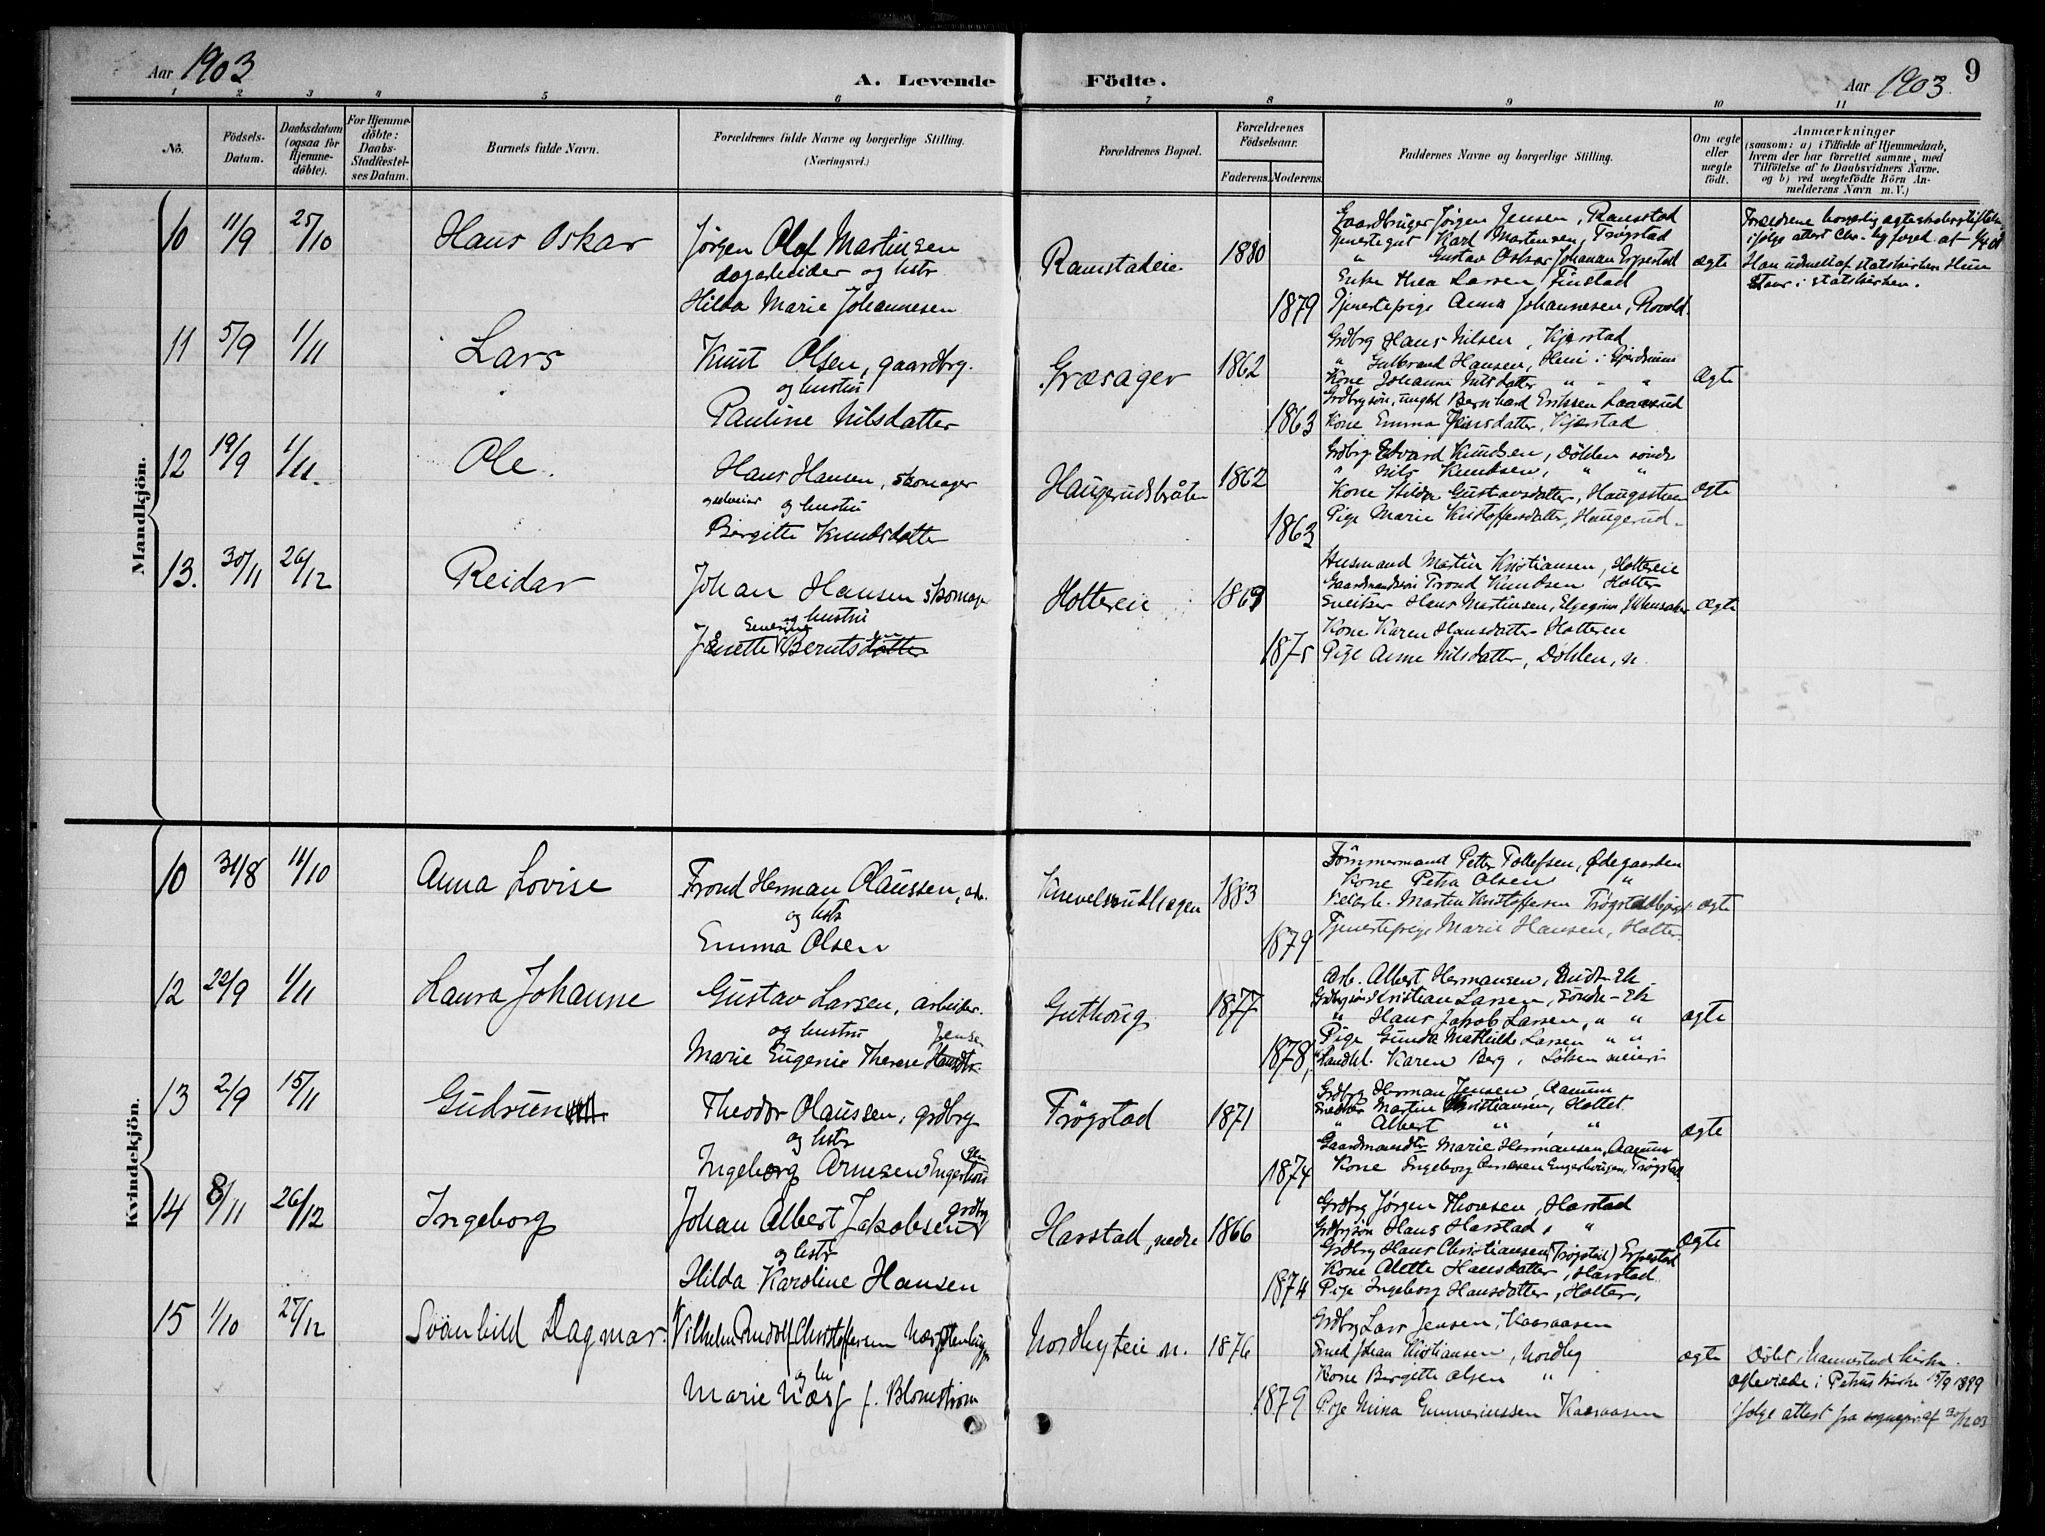 Aar 1903
A. Levende
Födte.
Aar 1903.
9
1 2 3 4 5 6 7 8 9 10 11
No.
Födsels-Datum.
Daabsdatum (ogsaa for Hjemmedöbte).
For Hjemmedöbte: Daabs-Stadfæstelses Datum.
Barnets fulde Navn.
Forældrenes fulde Navne og borgerlige Stilling.
(Næringsvei.)
Forældrenes Bopæl.
Forældrenes Födselsaar.
Faderens.
Moderens.
Faddernes Navne og borgerlige Stilling.
Om ægte eller uægte födt.
Anmærkninger
(saasom: a) i Tilfælde af Hjemmedaab,
hvem der har forrettet samme, med
Tilföielse af to Daabsvidners Navne.
og b) ved uægtefödte Börn An-
melderens Navn m. V.)
Mandkjön.
10 11/9 25/10 Hans Oskar
Jørgen Olaf Martinsen
dagarbeider og hstr
Hilda Marie Johannesen
Ramstadeie 1880
1879
Gaardbruger Jørgen Jensen, Ramstad
Tjenestegut Karl Martensen, Trøgstad
" Gustav Oskar Johansen Erpestad
Enke Thea Larsen, Finstad
Tjenestepige Anna Johannesen, Rovold.
ægte
Forældrene borgerlig
Han udmeldt af statskirken Hun
staar i statskirken.
11 5/9 1/11 Lars
Knut Olsen, gaardbrg.
og hustru
Pauline Nilsdatter
Græsager 1862
1863
Grdbrg Hans Nilsen, Kjærstad
" Gulbrand Hansen, Heni i Gjerdrum
Kone Johanne Nilsdatter " " "
Grdbrgsøn, ungkl Bernhard Erikssen
Kone Emma Hansdatter, Kjærstad
Ægte
12 19/9 1/11. Ole.
Hans Hansen, skomager
og hustru
Birgitte Knudsdatter
Haugerudsbråten 1862
1863
Grdbrg Edvard Knudsen, Döhlen söndre
" Nils Knudsen, " "
Kone Hilda Gustavsdatter, Haugssteen
Pige Marie Kristoffersdatter, Haugerud
ægte
13. 30/11 26/12 Reidar
Johan Hansen skomager
og hustru
Jenette Berntsdatter
Holtereie 1869
1875
Husmand Martin Kristiansen, Holtereie
Gaardmandssøn Trond Knudsen Holter
Sneiker Hans Martinsen,
Kone Karen Hansdatter Holtereie
Pige Anne Nilsdatter, Döhlen, n.
Ægte
Kvindekjön.
10 31/8 11/10 Anna Lovise
Trond Herman Olaussen, arb.
og hstr
Emma Olsen
Knevelsrudhagen 1883
1879
Tömmermand Petter Tollefsen, Ødegaarden
Kone Petra Olsen "
Martin Kristoffersen
Tjenestepige Marie Hansen, Holter
ægte
12 22/9 1/11 Laura Johanne
Gustav Larsen, arbeider.
og hustru Jensen
Marie Eugenie Therese
Guthoug 1877
1878,
Arb. Albert Hermansen, Ek
Grdbrgsøn Kristian Larsen, Söndre-Ek
" Hans Jakob Larsen, " "
Pige Gunda Mathilde Larsen " "
Karen Berg, meieri
ægte
13 2/9 15/11 Gudrun
Theodor Olaussen, grdbrg
og hstr
Ingeborg Arnesen
Trögstad 1871
1874
Grdbrg Herman Jensen, Aamum
Sneker Martin Christiansen, Holter
" Albert " "
Gaardmandsdtr Marie Hermansen, Aamum
Kone Ingeborg Arnesen Engerhougen, Trögstad
ægte
14 8/11 26/12 Ingeborg
Johan Albert Jakobsen grdbrg
og hstr
Hilda Karoline Hansen
Harstad, nedre 1866
1874
Grdbrg Jörgen Thoresen, Harstad
Grdbrgsön Hans Harstad, "
Grdbrg Hans Christiansen (Trögstad) Erpestad
Kone Alette Hansdatter, Harstad
Pige Ingeborg Hansdatter, Holter,
Ægte
15 1/10 27/12 Svanhild Dagmar.
Vilhelm Rudolf Christoffersen Næss
og hu
Marie Næss f. Blomstrøm
Nordbyeie n. 1876
1879
Grdbrg Lars Jensen, Kaasaasen
Smed Johan Kristiansen, Nordby
Kone Birgitte Olsen "
Pige Mina Gunneriussen Kaasaasen
ægte
Döbt i Nannestad kirke.
ægteviede i Petrus kirke 15/9 1899
ifølge attest fra sognepr. af 30/12 03